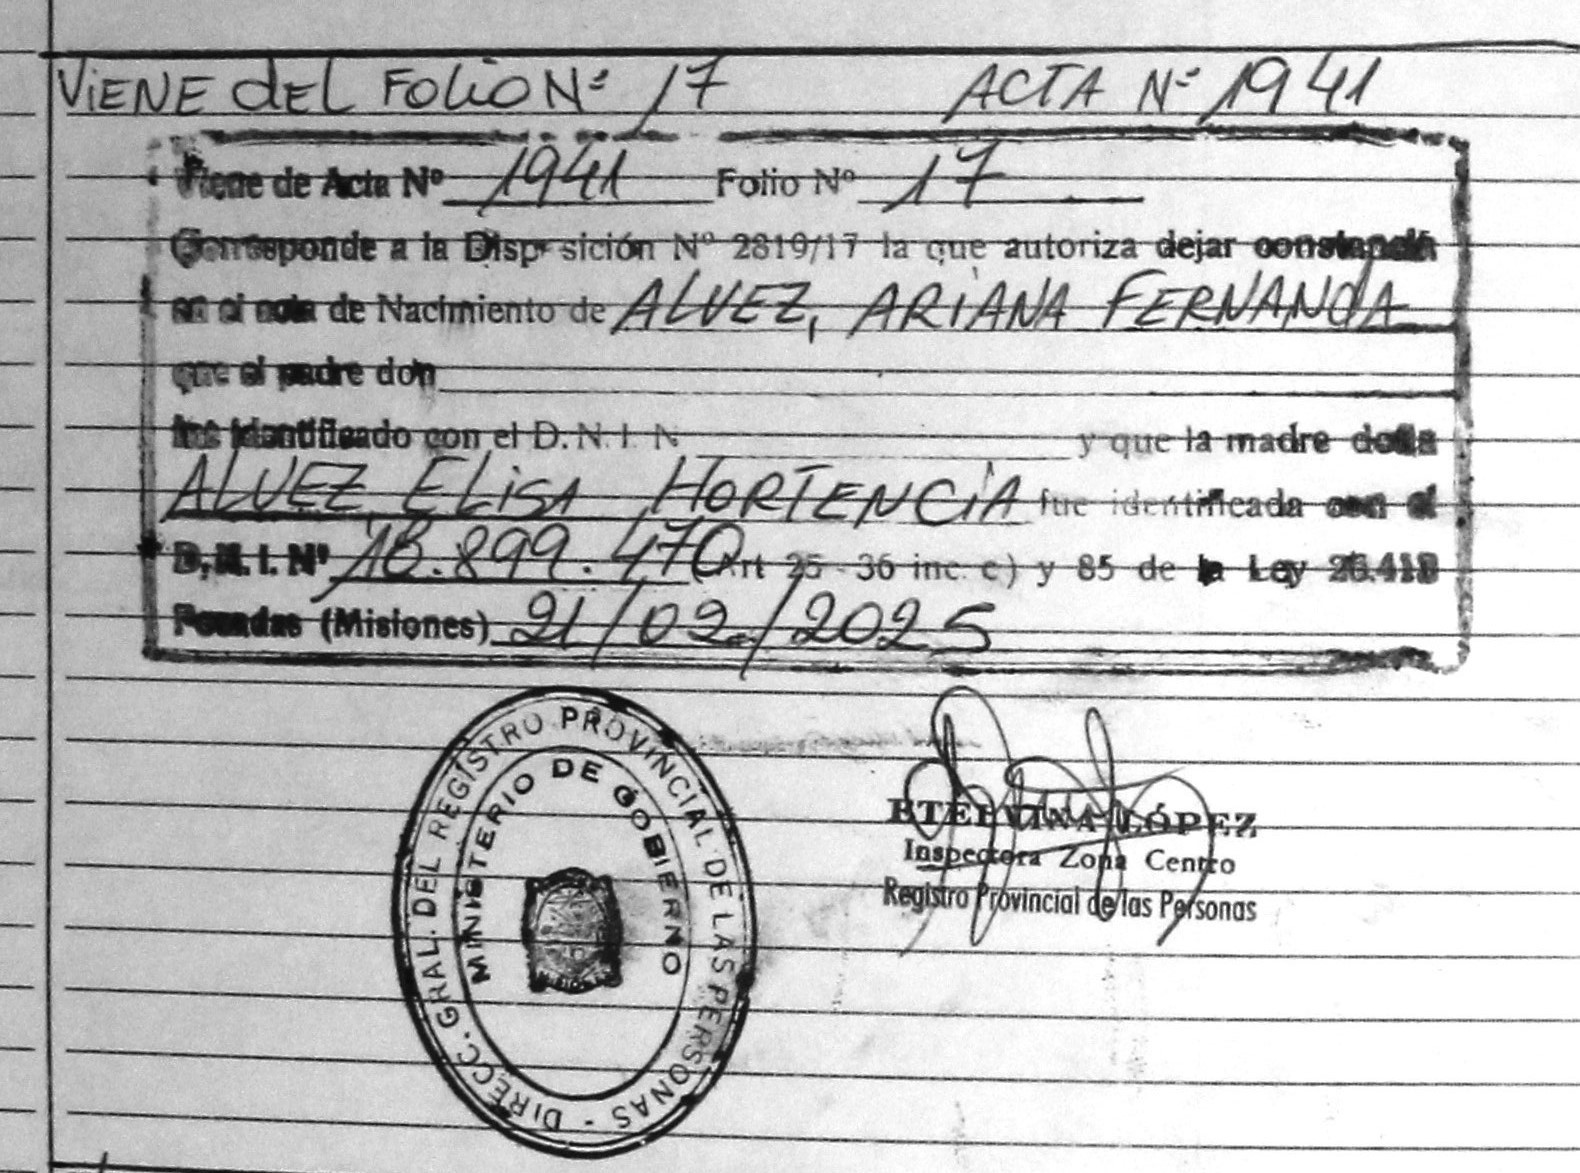 ViENE dEL FOLiO Nº 17 ACTA Nº 1941
Viene de Acta Nº 1941 Folio Nº 17
Corresponde a la Disposición Nº 2819/17 la que autoriza dejar constancia
en el acta de Nacimiento de ALVEZ, ARiANA FERNANdA
que el padre don
fue identificado con el D. N. I. N y que la madre doña
ALVEZ ELiSA HORTENCiA fue identificada con el
D. N. I. Nº 18.899.470 (Art 25 - 36 inc. c) y 85 de la Ley 26.413
Posadas (Misiones) 21/02/2025
DIRECC. GRAL. DEL REGISTRO PROVINCIAL DE LAS PERSONAS -
MINISTERIO DE GOBIERNO
ETELVINA LÓPEZ
Inspectora Zona Centro
Registro Provincial de las Personas